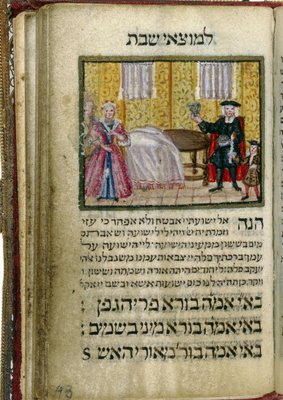 למוצאי שבת
הנה אל ישועתי אבטח ולא אפחד כי עזי
וזמרת יה ויהי לי לישועה ושאבתם
מים בששון ממעיני הישועה ליי הישועה על
עמך ברכתך סלה יי צבאות עמנו משגב לנו
יעקב סלה ליהודים היתה אורה ושמחה וששון
תהיה לנו כוס ישועות אשא ובשם יי אקר
באי אמה בורא פרי הגפן
באי אמה בורא מיני בשמים
באי אמה בור' מאורי האש
43